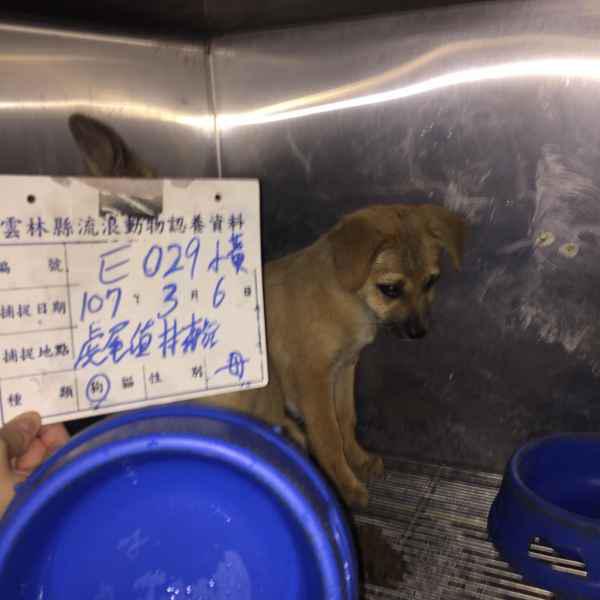 雲林縣流浪動物認養資料
編 號 E 029 小黃
捕捉日期 107 年 3 月 6 日
捕捉地點 虎尾
種 類 狗 貓 性 別 母